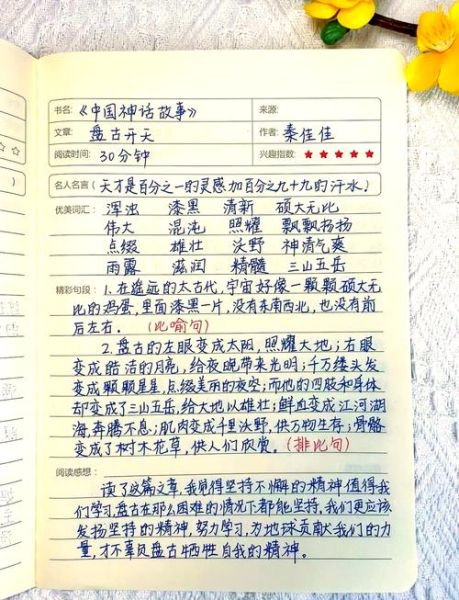 书名: 《中国神话故事》 来源:
文章: 盘古开天 作者: 秦佳佳
阅读时间: 30分钟 兴趣指数: ★★★★★
名人名言 (天才是百分之一的灵感加百分之九十九的汗水)
优美词汇: 浑浊 漆黑 清新 硕大无比
伟大 混沌 照耀 飘飘扬扬
点缀 雄壮 沃野 神清气爽
雨露 滋润 精髓 三山五岳
精彩句段: 1.在遥远的太古代,宇宙好像一颗颗硕大无
比的鸡蛋,里面漆黑一片,没有东南西北,也没有前
后左右。 (比喻句)
2.盘古的左眼变成太阳,照耀大地;右眼
变成皓洁的月亮,给夜晚带来光明;千万缕头发
变成颗颗星星,点缀美丽的夜空;而他的四肢和身体
却变成了三山五岳,给大地以雄壮;鲜血变成江河湖
海,奔腾不息;肌肉变成千里沃野,供万物生存;骨骼
变成了树木花草,供人们欣赏。(排比句)
阅读感想:
读了这篇文章,我觉得坚持不懈的精神值得我
们学习,盘古在那么困难的情况下都能坚持,我们更应该
发扬坚持的精神,努力学习,为地球贡献我们的力
量,才不辜负盘古牺牲自我的精神。